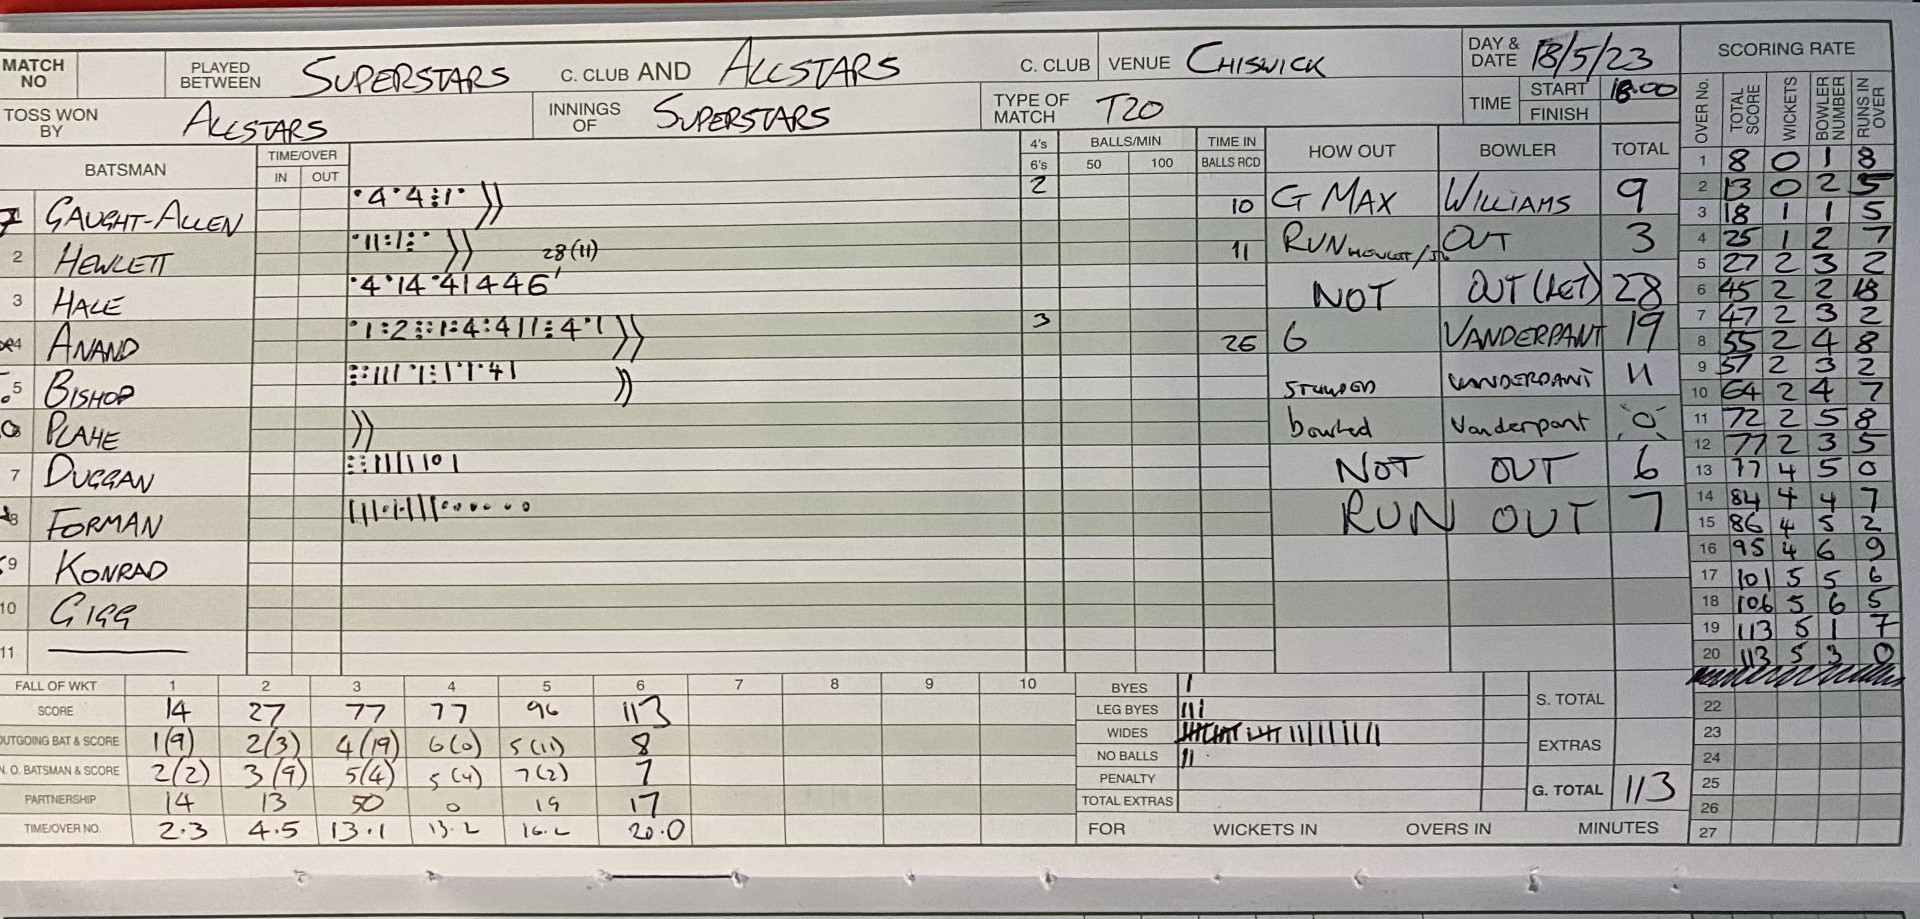 MATCH NO PLAYED BETWEEN SUPERSTARS C. CLUB AND ALLSTARS C. CLUB VENUE CHISWICK DAY & DATE 18/5/23 SCORING RATE
TOSS WON BY ALLSTARS INNINGS OF SUPERSTARS TYPE OF MATCH T20 TIME START 18.00 FINISH
OVER No. TOTAL SCORE WICKETS BOWLER NUMBER RUNS IN OVER
BATSMAN TIME/OVER IN OUT 4's 6's BALLS/MIN 50 100 TIME IN BALLS RCD HOW OUT BOWLER TOTAL
GAUGHT-ALLEN 2 10 G MAX WILLIAMS 9
2 HEWLETT 28(11) 11 RUN OUT 3
3 HALE NOT OUT (RET) 28
4 ANAND 3 26 G VANDERPANT 19
5 BISHOP STUMPED VANDERPANT 11
PLAHE bowled Vanderpant 0
7 DUGGAN NOT OUT 6
8 FORMAN RUN OUT 7
9 KONRAD
10 GIGG
11
1 8 0 1 8
2 13 0 2 5
3 18 1 1 5
4 25 1 2 7
5 27 2 3 2
6 45 2 2 18
7 47 2 3 2
8 55 2 4 8
9 57 2 3 2
10 64 2 4 7
11 72 2 5 8
12 77 2 3 5
13 77 4 5 0
14 84 4 4 7
15 86 4 5 2
16 95 4 6 9
17 101 5 5 6
18 106 5 6 5
19 113 5 1 7
20 113 5 3 0
22
23
24
25
26
27
FALL OF WKT 1 2 3 4 5 6 7 8 9 10
SCORE 14 27 77 77 96 113
OUTGOING BAT & SCORE 1(9) 2(3) 4(19) 6(0) 5(11) 8
N. O. BATSMAN & SCORE 2(2) 3(9) 5(4) 5(4) 7(2) 7
PARTNERSHIP 14 13 50 0 19 17
TIME/OVER NO. 2.3 4.5 13.1 13.2 16.2 20.0
BYES I
LEG BYES III
WIDES
NO BALLS II
PENALTY
TOTAL EXTRAS
S. TOTAL
EXTRAS
G. TOTAL 113
FOR WICKETS IN OVERS IN MINUTES